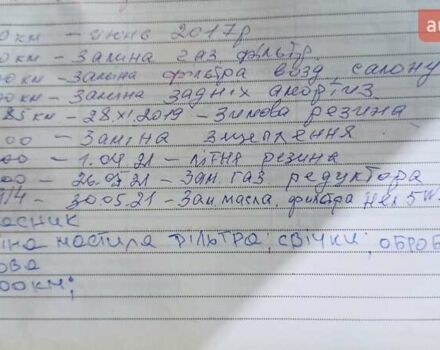 au
0 км – июнь 2017р
0 км – Заміна газ фільтр
00 км – Заміна фільтра возд, салону
00 км – Заміна задніх аморtiз
85 км – 28.XI.2019 – Зимова резина
00 – Заміна зщеплення.
00 – 1.04.21 – літня резина
00 – 26.05.21 – Зам. газ редуктора
30.05.21 – Зам. масла, фильтра 5W
асник
іна мастила фільтра, свічки, оброб
ова
00 км;